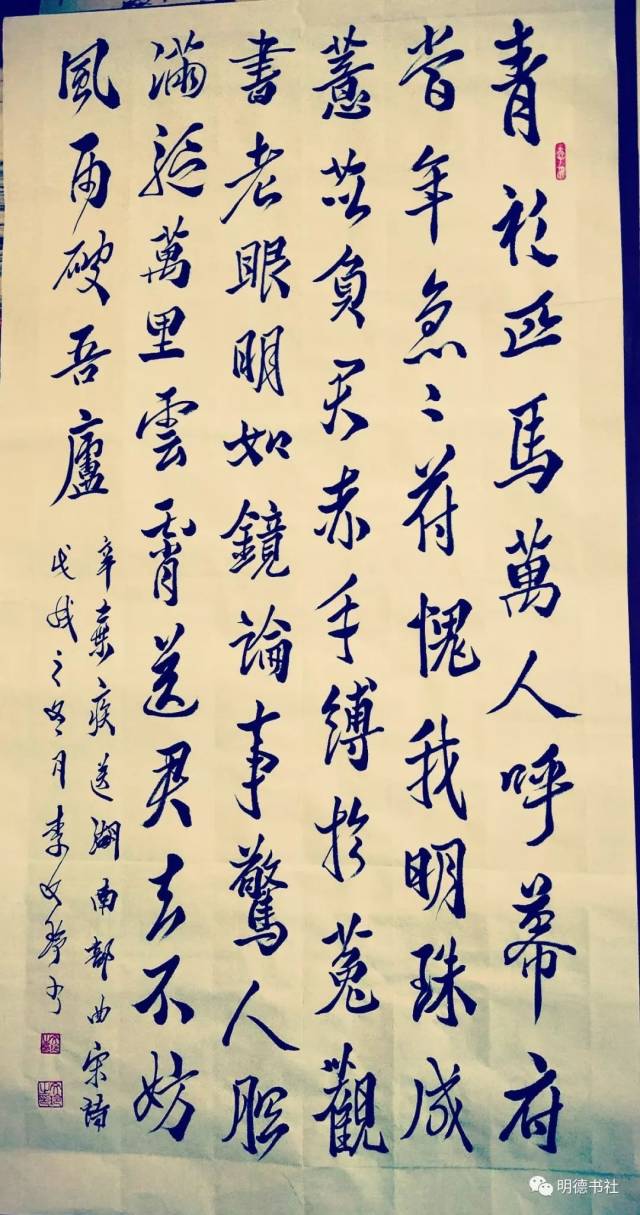 青衫匹馬萬人呼幕府
當年急々符愧我明珠成
薏苡負君赤手縛於菟觀
書老眼明如鏡論事驚人胆
滿躯萬里雲霄送君去不妨
風雨破吾廬
辛棄疾送湖南部曲宋詩
戊戌之冬月李书
明德书社